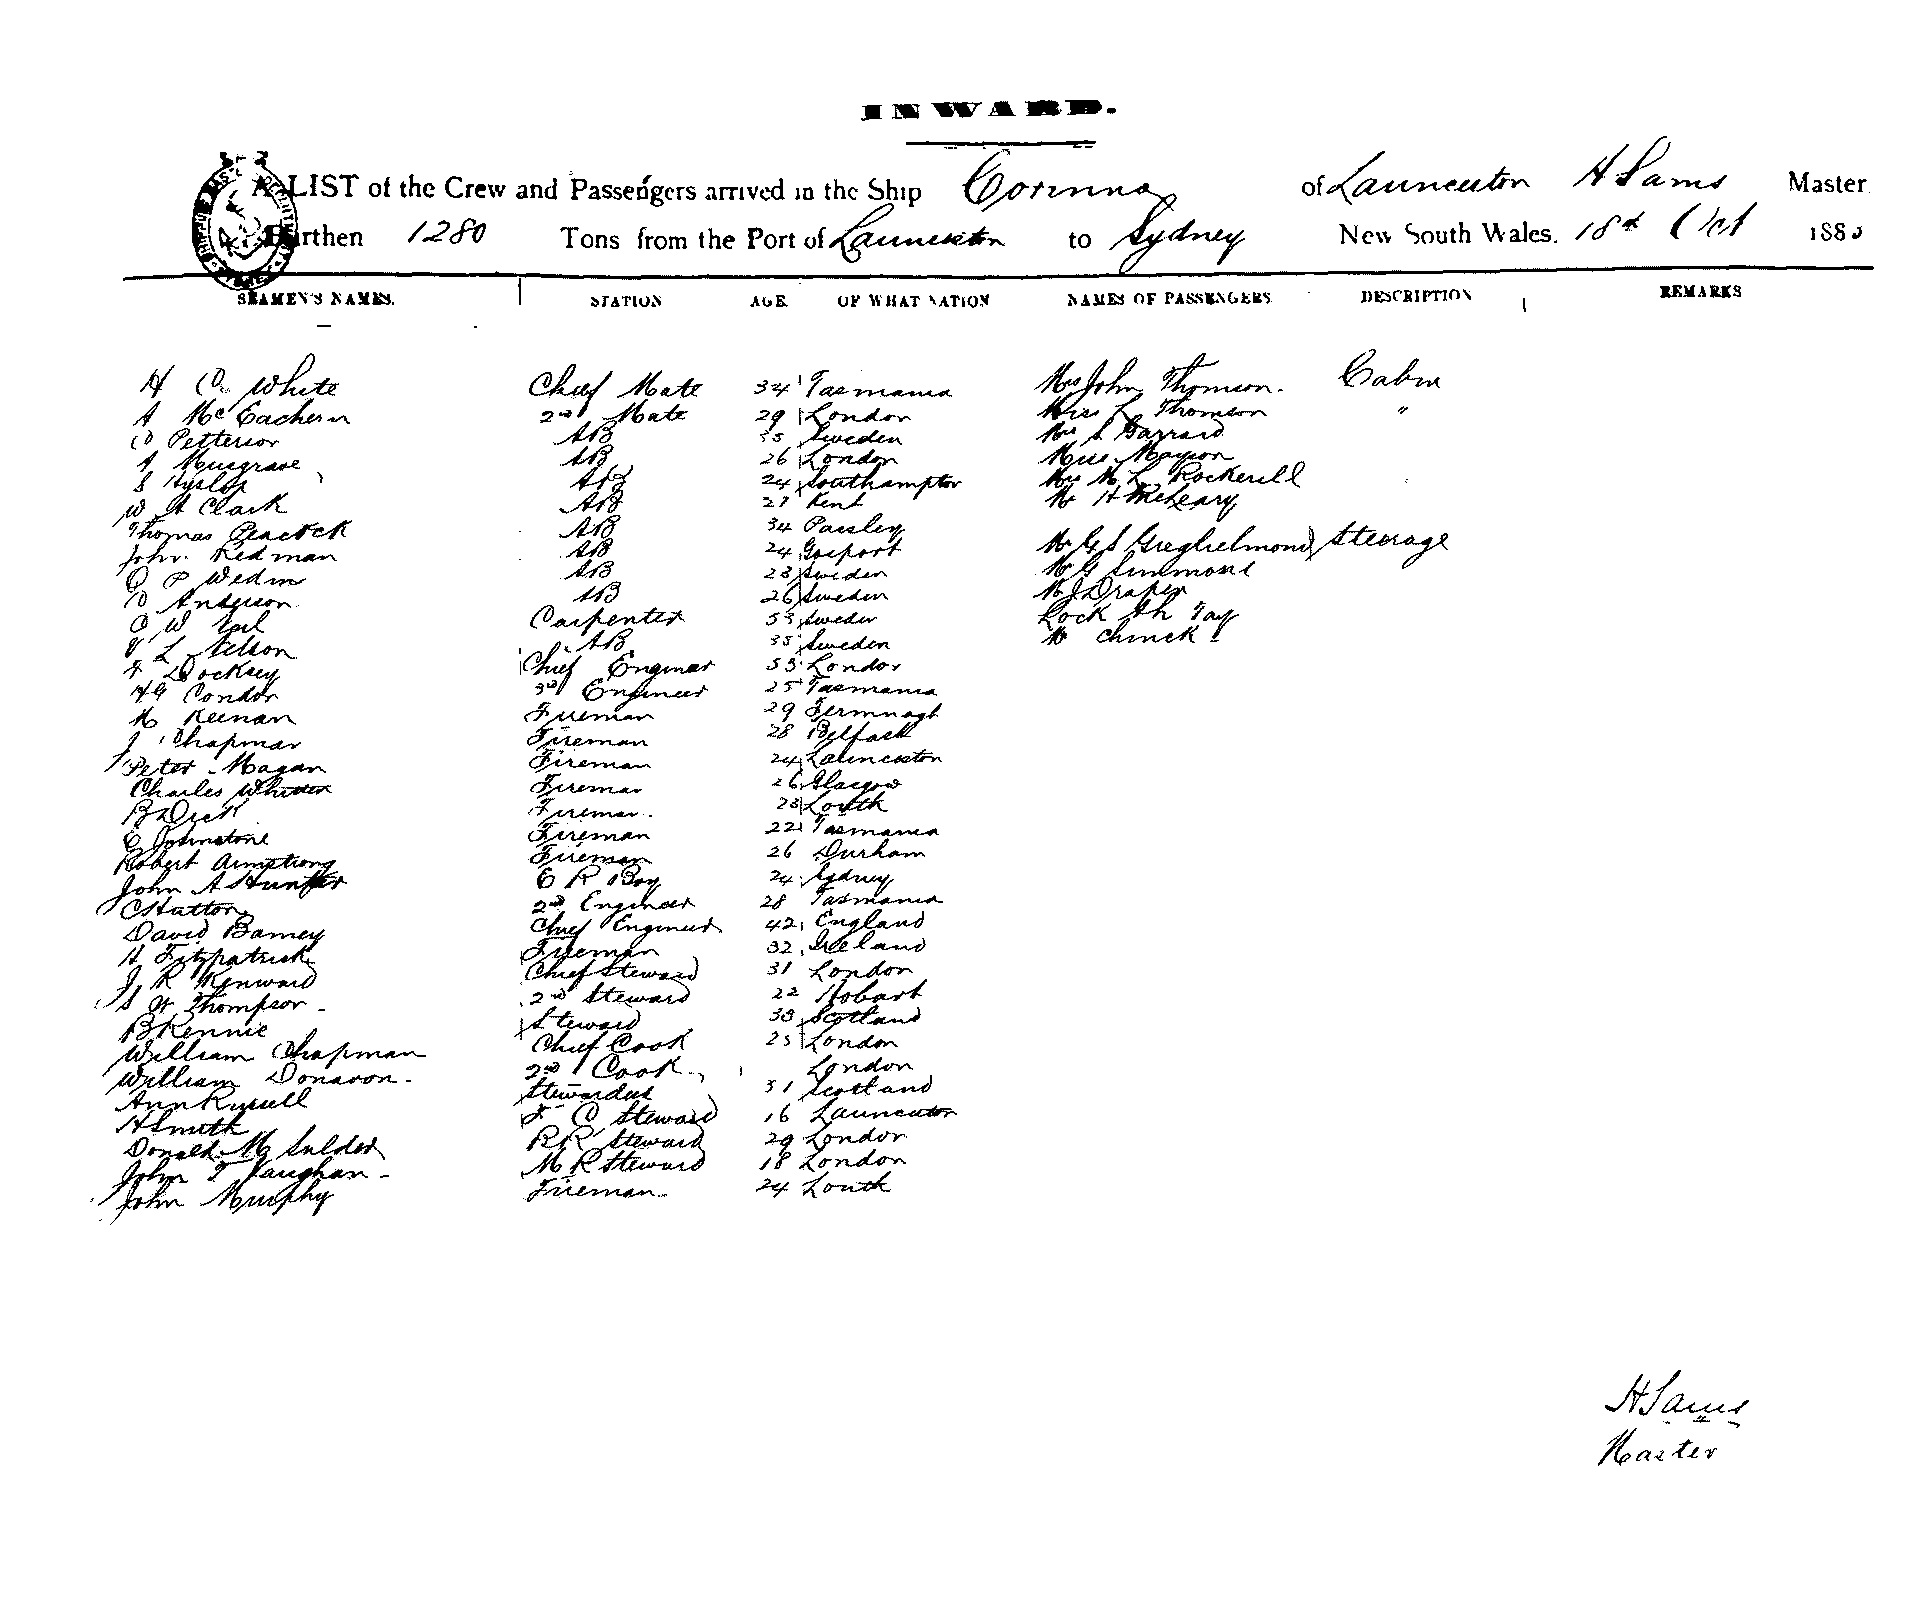 INWARD.
A LIST of the Crew and Passengers arrived in the Ship Corinna of Launceston H Sams Master
Burthen 1280 Tons from the Port of Launceston to Sydney New South Wales. 18th Oct 188
SEAMEN'S NAMES. STATION AGE. OF WHAT NATION NAMES OF PASSENGERS DESCRIPTION REMARKS
H C White Chief Mate 34 Tasmania Mrs John Thomson. Cabin
A McEachern 2nd Mate 29 London Miss L Thomson "
O Petterson AB 35 Sweden Mrs S Garrard
A Musgrave AB 26 London Miss
S Hyslop AB 24 Southampton Mrs M L Rockerell
W H Clark AB 27 Kent Mr H McLeary
Thomas Peacock AB 34 Paisley
John Redman AB 24 Gosport Mr G S Steerage
O P Wedin AB 23 Sweden Mr G Simmons
O Anderson AB 26 Sweden Mr J Draper
O W Carpenter 53 Sweden Lock Ah Tay
L Nelson AB 35 Sweden Mr Chinek
F Docksey Chief Engineer 53 London
HG Condor 3rd Engineer 25 Tasmania
M Keenan Fireman 29 Fermnagh
J Chapman Fireman 28 Belfast
Peter Magan Fireman 24 Launceston
Charles Fireman 26 Glasgow
B Dick Fireman 23 Louth
E Johnstone Fireman 22 Tasmania
Robert Armstrong Fireman 26 Durham
John A Hunter E R Boy 24 Sydney
C Hutton 2nd Engineer 28 Tasmania
David Barney Chief Engineer 42 England
H Fitzpatrick Fireman 32 Ireland
J R Kenward Chief Steward 31 London
S H Thompson 2nd Steward 22 Hobart
B Rennie Steward 38 Scotland
William Chapman Chief Cook 25 London
William Donavon 2nd Cook London
Ann Russell Stewardess 31 Scotland
H Smith F C Steward 16 Launceston
Donald M RR Steward 29 London
John T Vaughan M R Steward 18 London
John Murphy Fireman 24 Louth
H Sams
Master